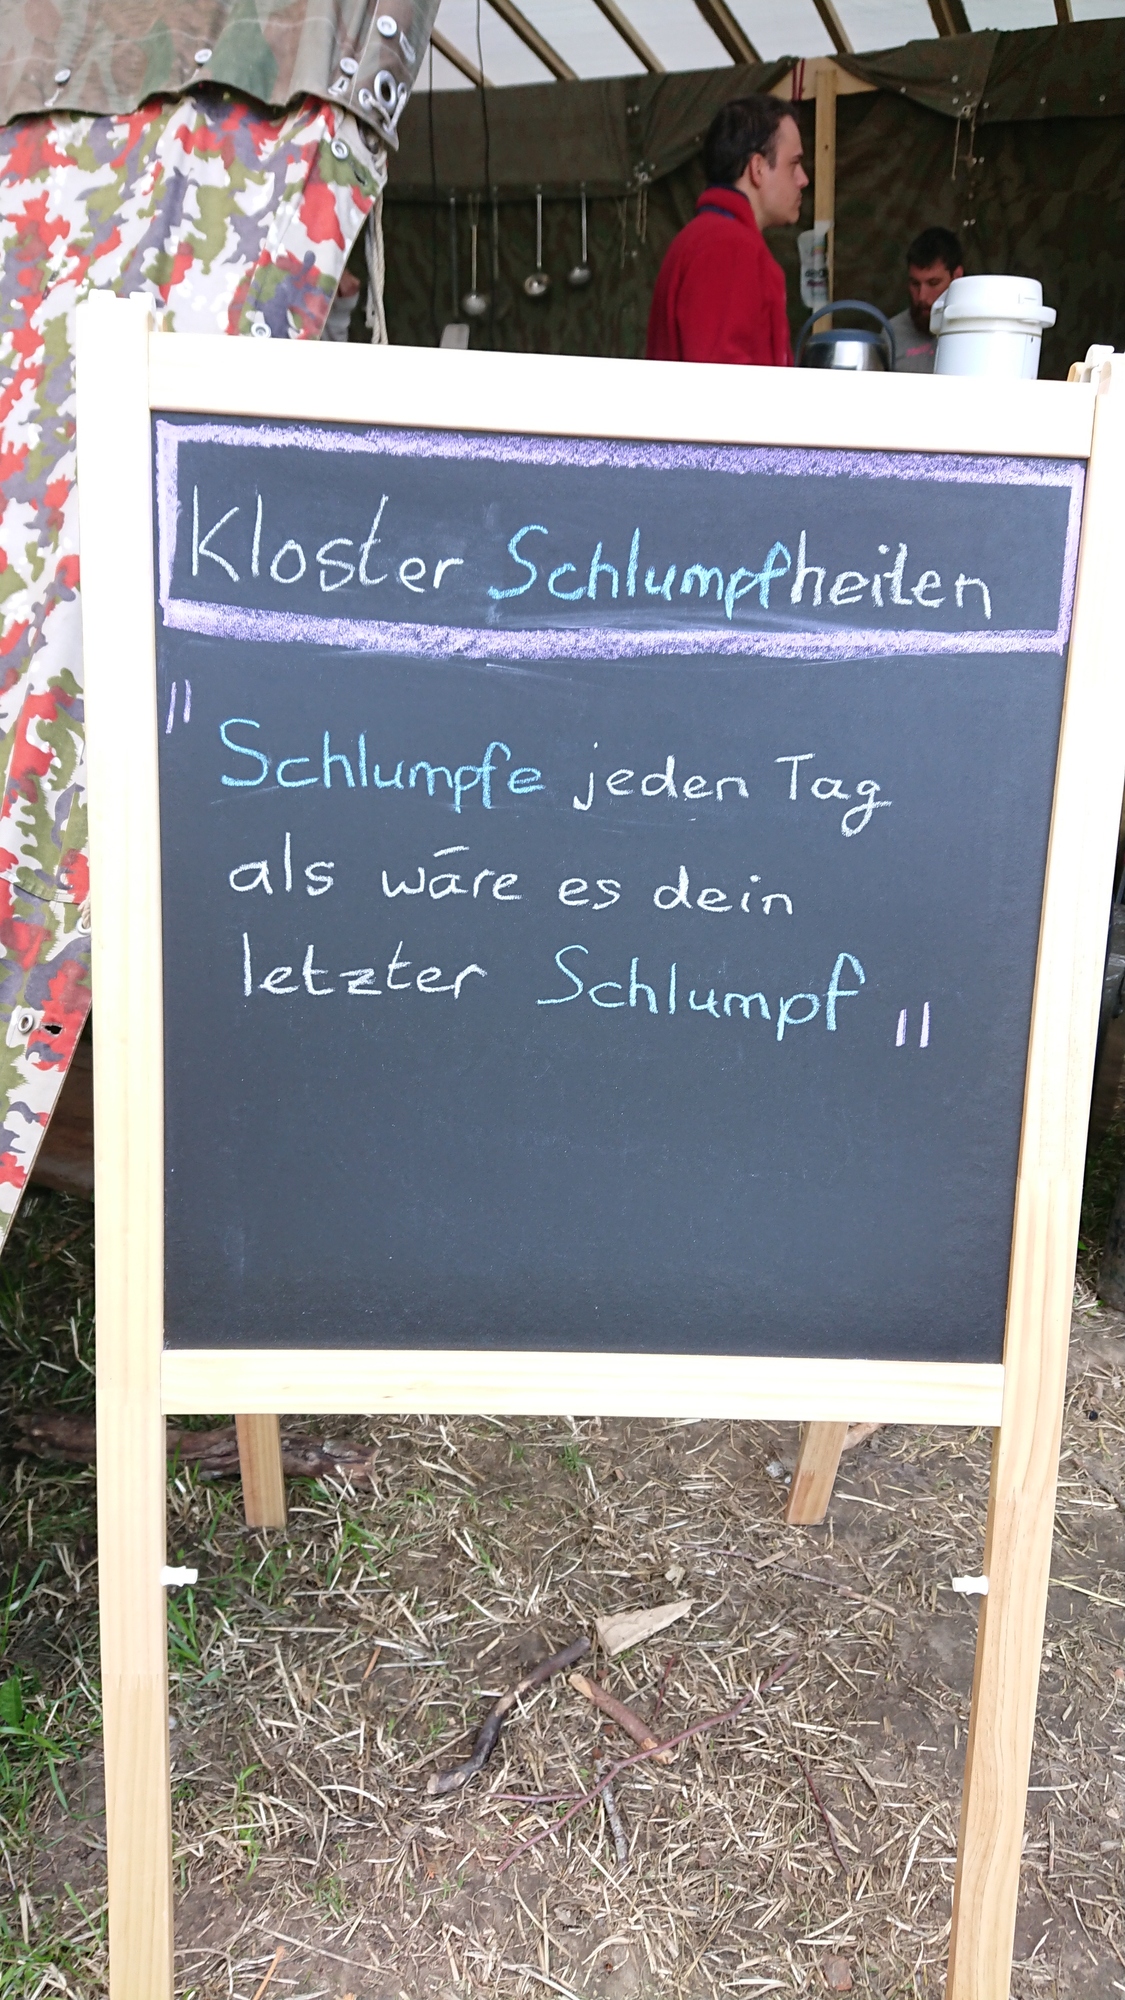 Kloster Schlumpfheiten
"Schlumpfe jeden Tag
als wäre es dein
letzter Schlumpf"